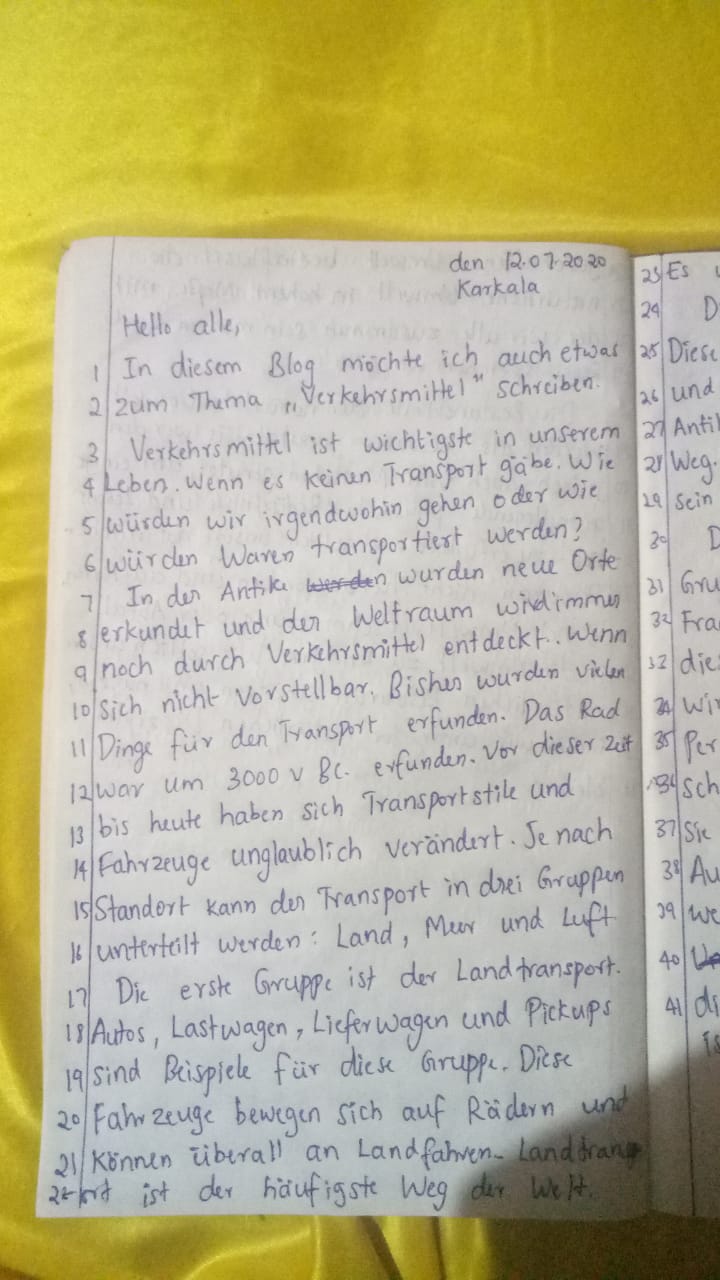 den 12.07.2020
Karkala
Hello alle,
1 In diesem Blog möchte ich auch etwas
2 zum Thema „Verkehrsmittel" schreiben.
3 Verkehrsmittel ist wichtigste in unserem
4 Leben. Wenn es keinen Transport gäbe. Wie
5 würden wir irgendwohin gehen oder wie
6 würden Waren transportiert werden?
7 In der Antike werden wurden neue Orte
8 erkundet und der Weltraum wird immer
9 noch durch Verkehrsmittel entdeckt. Wenn
10 Sich nicht Vorstellbar. Bisher wurden vielen
11 Dinge für den Transport erfunden. Das Rad
12 war um 3000 v BC. erfunden. Vor dieser Zeit
13 bis heute haben sich Transportstile und
14 Fahrzeuge unglaublich verändert. Je nach
15 Standort kann der Transport in drei Gruppen
16 unterteilt werden: Land, Meer und Luft
17 Die erste Gruppe ist der Landtransport.
18 Autos, Lastwagen, Lieferwagen und Pickups
19 sind Beispiele für diese Gruppe. Diese
20 Fahrzeuge bewegen sich auf Rädern und
21 können überall an Land fahren. Landtransp
22 ort ist der häufigste Weg der Welt.
23 Es
24 D
25 Diese
26 und
27 Antik
28 Weg.
29 sein
30 D
31 Gru
32 Fra
32 die
34 wir
35 Per
36 sch
37 Sie
38 Au
39 we
40
41 di
is